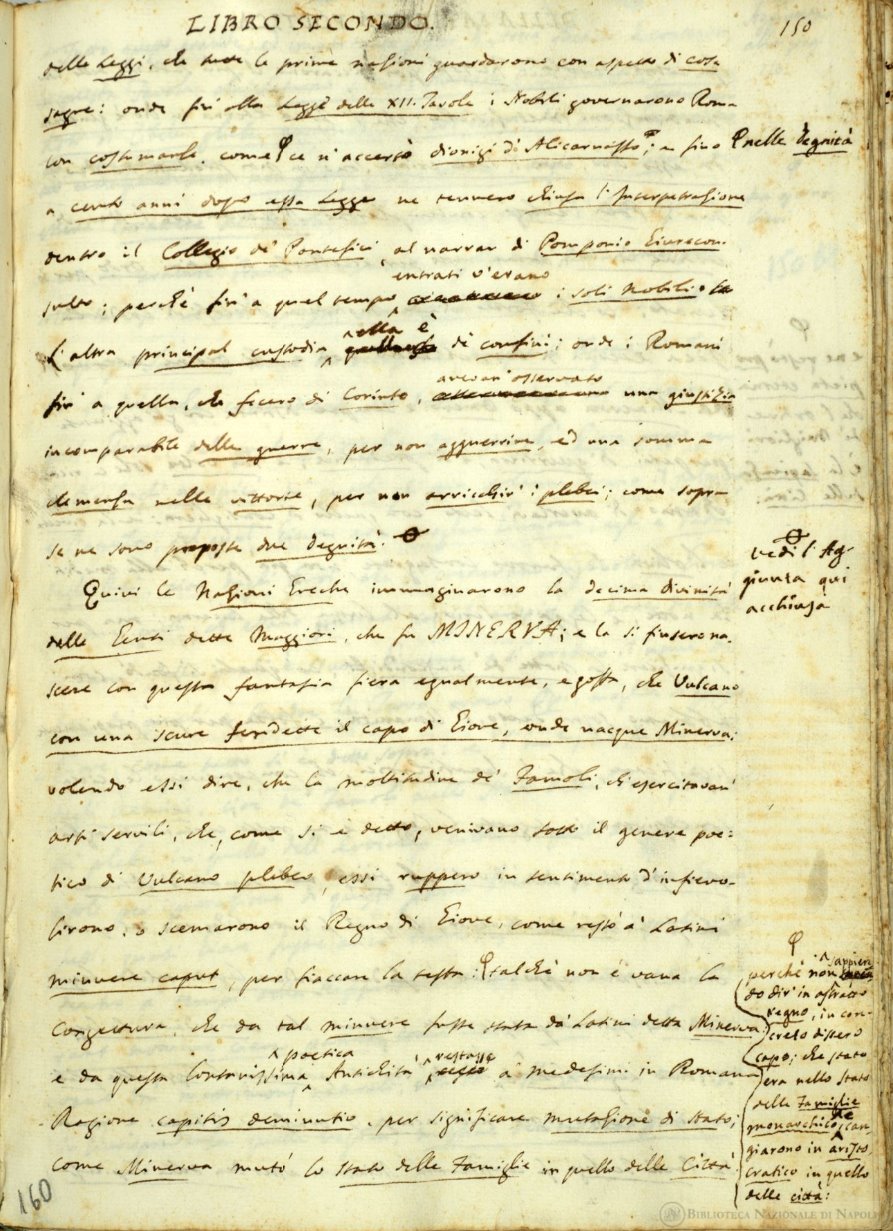 LIBRO SECONDO.
150
delle Leggi, che tutte le prime nazioni guardarono con aspetto di cose
sagre: onde fin' alla Legge delle XII. Tavole i Nobili governarono Roma
con costumanze, come ce n' accertò Dionigi di Alicarnasso; e fino
nelle Degnità
a cento anni dopo essa Legge ne tennero chiusa l' Interpetrazione
dentro il Collegio de' Pontefici, al narrar di Pomponio Giurecon-
entrati v' erano
sulto; perchè fin' a quel tempo i soli Nobili.
ella è
L' altra principal custodia de' confini; onde i Romani
avevan' osservato
fin' a quella, che fecero di Corinto, una giustizia
incomparabile nelle guerre, per non agguerrire, ed una somma
clemenza nelle vittorie, per non arricchir' i plebei; come sopra
se ne sono proposte due Degnità.
vedi l' Ag-
giunta qui
acchiusa
Quivi le Nazioni Greche immaginarono la decima divinità
delle Genti dette Maggiori, che fu MINERVA; e la si finsero na-
scere con questa fantasia fiera egualmente, e goffa, che Vulcano
con una scure fendette il capo di Giove, onde nacque Minerva;
volendo essi dire, che la moltitudine de' Famoli, ch' esercitavan'
arti servili, che, come si è detto, venivano sotto il genere poe-
tico di Vulcano plebeo, essi ruppero in sentimento d' infievo-
lirono, o scemarono il Regno di Giove, come restò a' Latini
minuere caput, per fiaccare la testa: talchè non è vana la
Congettura, che da tal minuere fusse stata da' Latini detta Minerva;
poetica
restasse
e da questa lontanissima Antichità a' medesimi in Romana
Ragione capitis deminutio, per significare mutazione di stato;
come Minerva mutò lo stato delle Famiglie in quello delle Città
perchè non sappien-
do dir' in astratto
regno, in con-
creto dissero
capo; che stato
era nello Stato
delle Famiglie
monarchico, e can-
giarono in aristo-
cratico in quello
delle città:
160
BIBLIOTECA NAZIONALE DI NAPOLI